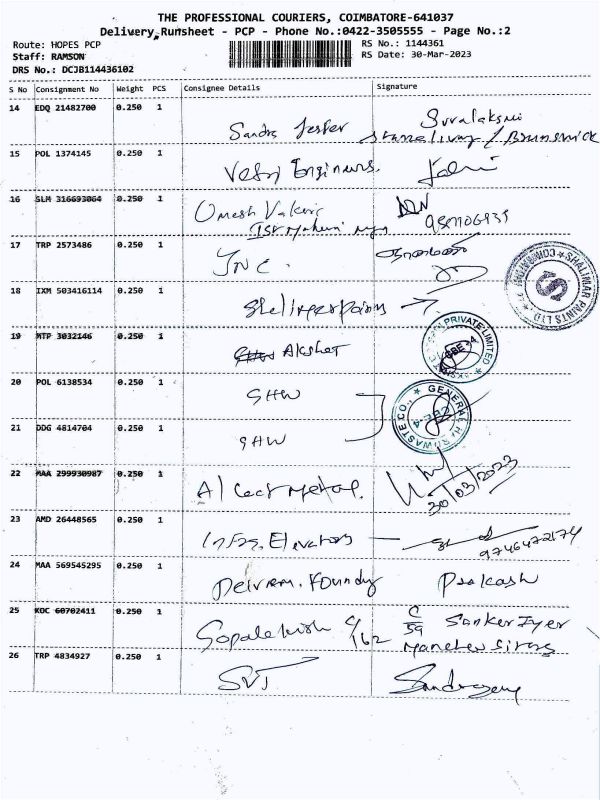 THE PROFESSIONAL COURIERS, COIMBATORE-641037
Delivery Runsheet - PCP - Phone No.:0422-3505555 - Page No.:2
Route: HOPES PCP
RS No.: 1144361
Staff: RAMSON
RS Date: 30-Mar-2023
DRS No.: DCJB114436102
S No Consignment No Weight PCS Consignee Details Signature
14 EDQ 21482700 0.250 1
15 POL 1374145 0.250 1 Engineers.
16 SLM 316693064 0.250 1 Umesh
17 TRP 2573486 0.250 1 JNC.
SHALIMAR PAINTS LTD
18 IXM 503416114 0.250 1
19 MTP 3032146 0.250 1 Akshat
PRIVATE LIMITED
CBE-4
20 POL 6138534 0.250 1 GHW
GENERAL HARDWASTE CO.,
CBE-4
21 DDG 4814704 0.250 1 GHW
22 MAA 299930987 0.250 1
30/03/2023
23 AMD 26448565 0.250 1 Infra. Elevators
9746472174
24 MAA 569545295 0.250 1 Foundry Prakash
25 KOC 60702411 0.250 1 C/162 C/59 Sanker Iyer
26 TRP 4834927 0.250 1 SVT